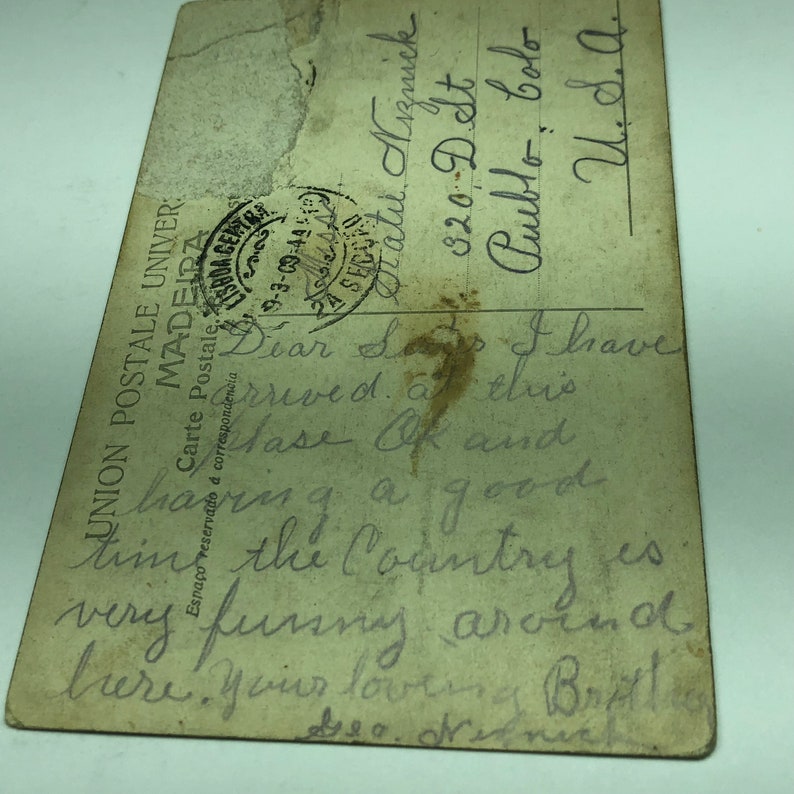 UNION POSTALE UNIVER
MADEIRA
Carte Postale.
Espaço reservado á correspondencia
LISBOA CENTRAL
9-3-09
SECCÃO
Miss
Katie Niznick
320. D. St
Pueblo. Colo
U.S.A.
Dear Sister I have
arrived at this
plase OK and
having a good
time the Country is
very funny around
here. Your loving Brother
Geo. Niznick